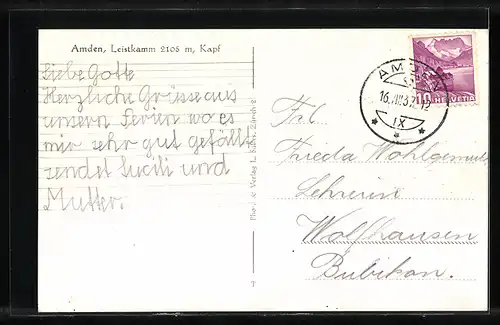 Amden, Leistkamm 2105 m, Kapf
Liebe Gotte
Herzliche Grüsse aus
unsern Ferien wo es
mir sehr gut gefällt
sendet Lucili und
Mutter.
AMDEN
IX
10 HELVETIA
Frl.
Frieda Wohlgemut
Lehrerin
Wolfhausen
Bubikon.
T